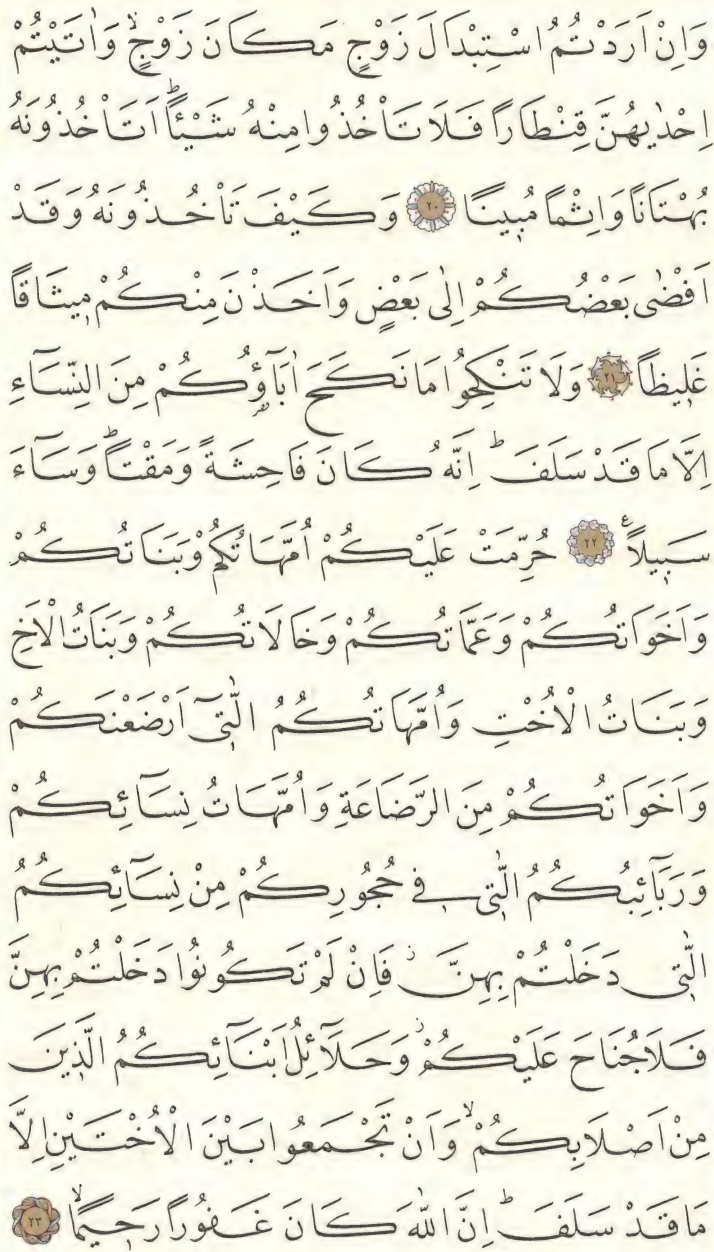 وَاِنْ اَرَدْتُمُ اسْتِبْدَالَ زَوْجٍ مَكَانَ زَوْجٍۙ وَاٰتَيْتُمْ
اِحْدٰيهُنَّ قِنْطَاراً فَلَا تَأْخُذُوا مِنْهُ شَيْـٔاًۜ اَتَأْخُذُونَهُ
بُهْتَاناً وَاِثْماً مُب۪يناً ﴿٢٠﴾ وَكَيْفَ تَأْخُذُونَهُ وَقَدْ
اَفْضٰى بَعْضُكُمْ اِلٰى بَعْضٍ وَاَخَذْنَ مِنْكُمْ م۪يثَاقاً
غَل۪يظاً ﴿٢١﴾ وَلَا تَنْكِحُوا مَا نَكَحَ اٰبَٓاؤُ۬كُمْ مِنَ النِّسَٓاءِ
اِلَّا مَا قَدْ سَلَفَۜ اِنَّهُ كَانَ فَاحِشَةً وَمَقْتاًۜ وَسَٓاءَ
سَب۪يلاً۟ ﴿٢٢﴾ حُرِّمَتْ عَلَيْكُمْ اُمَّهَاتُكُمْ وَبَنَاتُكُمْ
وَاَخَوَاتُكُمْ وَعَمَّاتُكُمْ وَخَالَاتُكُمْ وَبَنَاتُ الْاَخِ
وَبَنَاتُ الْاُخْتِ وَاُمَّهَاتُكُمُ الّٰت۪ٓي اَرْضَعْنَكُمْ
وَاَخَوَاتُكُمْ مِنَ الرَّضَاعَةِ وَاُمَّهَاتُ نِسَٓائِكُمْ
وَرَبَٓائِبُكُمُ الّٰت۪ي ف۪ي حُجُورِكُمْ مِنْ نِسَٓائِكُمُ
الّٰت۪ي دَخَلْتُمْ بِهِنَّۘ فَاِنْ لَمْ تَكُونُوا دَخَلْتُمْ بِهِنَّ
فَلَا جُنَاحَ عَلَيْكُمْۘ وَحَلَٓائِلُ اَبْنَٓائِكُمُ الَّذ۪ينَ
مِنْ اَصْلَابِكُمْۙ وَاَنْ تَجْمَعُوا بَيْنَ الْاُخْتَيْنِ اِلَّا
مَا قَدْ سَلَفَۜ اِنَّ اللّٰهَ كَانَ غَفُوراً رَح۪يماًۙ ﴿٢٣﴾